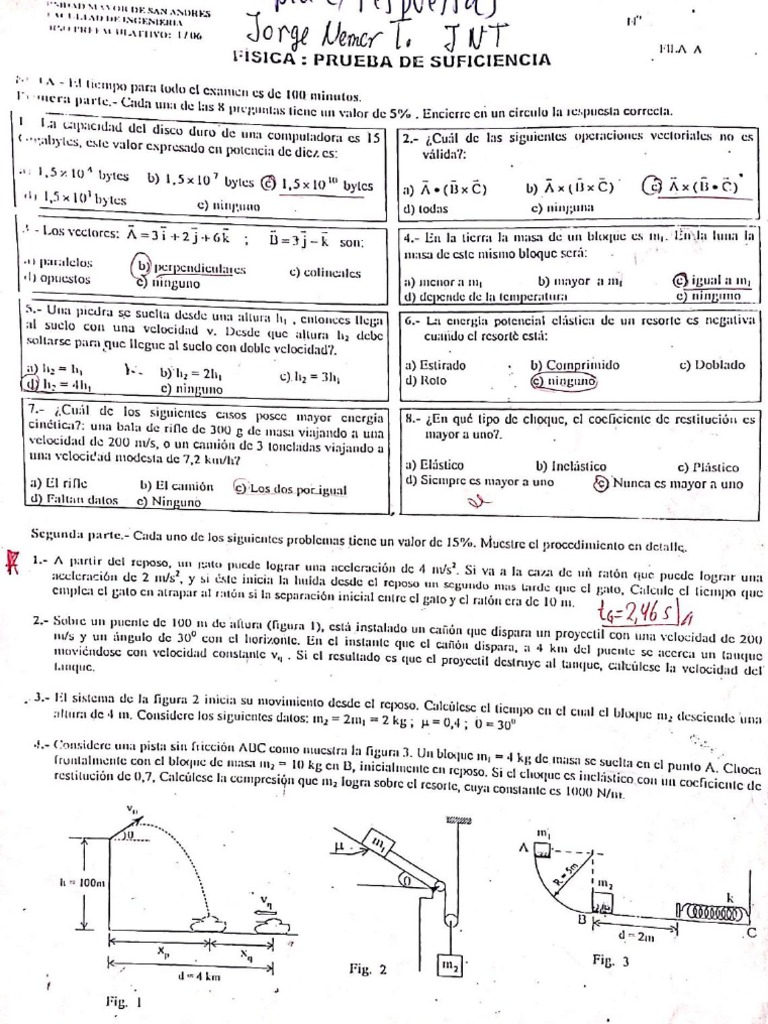 MAYOR DE SAN ANDRES
FACULTAD DE INGENIERIA
CURSO PREFACULTATIVO: 1/06
respuestas
Jorge Nemer T. JNT
Nº
FILA A
FISICA : PRUEBA DE SUFICIENCIA
NOTA - El tiempo para todo el examen es de 100 minutos.
Primera parte.- Cada una de las 8 preguntas tiene un valor de 5% . Encierre en un circulo la respuesta correcta.
1 La capacidad del disco duro de una computadora es 15
Gigabytes, este valor expresado en potencia de diez es:
a) 1,5×10⁴ bytes b) 1,5×10⁷ bytes c) 1,5×10¹⁰ bytes
d) 1,5×10³ bytes e) ninguno
2.- ¿Cuál de las siguientes operaciones vectoriales no es
válida?:
a) A⃗•(B⃗×C⃗) b) A⃗×(B⃗×C⃗) c) A⃗×(B⃗•C⃗)
d) todas e) ninguna
3.- Los vectores: A⃗=3i⃗+2j⃗+6k⃗ ; B⃗=3j⃗−k⃗ son:
a) paralelos b) perpendiculares c) colineales
d) opuestos e) ninguno
4.- En la tierra la masa de un bloque es m₁. En la luna la
masa de este mismo bloque será:
a) menor a m₁ b) mayor a m₁ c) igual a m₁
d) depende de la temperatura e) ninguno
5.- Una piedra se suelta desde una altura h₁ , entonces llega
al suelo con una velocidad v. Desde que altura h₂ debe
soltarse para que llegue al suelo con doble velocidad?.
a) h₂ = h₁ b) h₂ = 2h₁ c) h₂ = 3h₁
d) h₂ = 4h₁ e) ninguno
6.- La energia potencial elástica de un resorte es negativa
cuando el resorte está:
a) Estirado b) Comprimido c) Doblado
d) Roto e) ninguno
7.- ¿Cuál de los siguientes casos posee mayor energia
cinética?: una bala de rifle de 300 g de masa viajando a una
velocidad de 200 m/s, o un camión de 3 toneladas viajando a
una velocidad modesta de 7,2 km/h?
a) El rifle b) El camión c) Los dos por igual
d) Faltan datos e) Ninguno
8.- ¿En qué tipo de choque, el coeficiente de restitución es
mayor a uno?.
a) Elástico b) Inelástico c) Plástico
d) Siempre es mayor a uno e) Nunca es mayor a uno
Segunda parte.- Cada uno de los siguientes problemas tiene un valor de 15%. Muestre el procedimiento en detalle.
1.- A partir del reposo, un gato puede lograr una aceleración de 4 m/s². Si va a la caza de un ratón que puede lograr una
aceleración de 2 m/s², y si éste inicia la huida desde el reposo un segundo mas tarde que el gato, Calcule el tiempo que
emplea el gato en atrapar al ratón si la separación inicial entre el gato y el ratón era de 10 m.
t_G=2,46 s
2.- Sobre un puente de 100 m de altura (figura 1), está instalado un cañón que dispara un proyectil con una velocidad de 200
m/s y un ángulo de 30⁰ con el horizonte. En el instante que el cañón dispara, a 4 km del puente se acerca un tanque
moviéndose con velocidad constante v_q . Si el resultado es que el proyectil destruye al tanque, calcúlese la velocidad del
tanque.
3.- El sistema de la figura 2 inicia su movimiento desde el reposo. Calcúlese el tiempo en el cual el bloque m₂ desciende una
altura de 4 m. Considere los siguientes datos: m₂ = 2m₁ = 2 kg ; μ = 0,4 ; θ = 30⁰
4.- Considere una pista sin fricción ABC como muestra la figura 3. Un bloque m₁ = 4 kg de masa se suelta en el punto A. Choca
frontalmente con el bloque de masa m₂ = 10 kg en B, inicialmente en reposo. Si el choque es inelástico con un coeficiente de
restitución de 0,7, Calcúlese la compresión que m₂ logra sobre el resorte, cuya constante es 1000 N/m.
v₀
θ
h = 100m
v_q
x_p
x_q
d = 4 km
Fig. 1
μ
m₁
θ
m₂
Fig. 2
m₁
A
R = 5m
m₂
k
B
C
d = 2m
Fig. 3